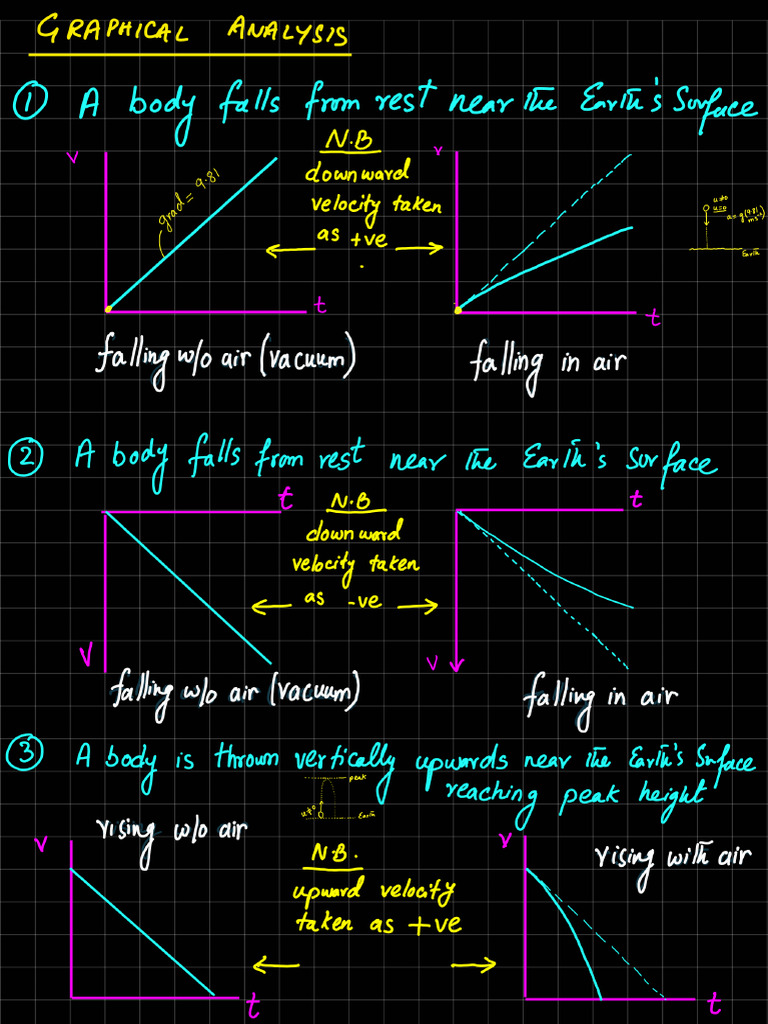 GRAPHICAL ANALYSIS
① A body falls from rest near the Earth's Surface
N.B
downward
velocity taken
as +ve
v
grad = 9.81
t
v
t
u=0
a=g(9.81
ms⁻²)
Earth
falling w/o air (vacuum)
falling in air
② A body falls from rest near the Earth's Surface
t
N.B
downward
velocity taken
as -ve
t
v
v
falling w/o air (vacuum)
falling in air
③ A body is thrown vertically upwards near the Earth's Surface
reaching peak height
peak
u≠0
Earth
rising w/o air
v
N.B.
upward velocity
taken as +ve
v
rising with air
t
t